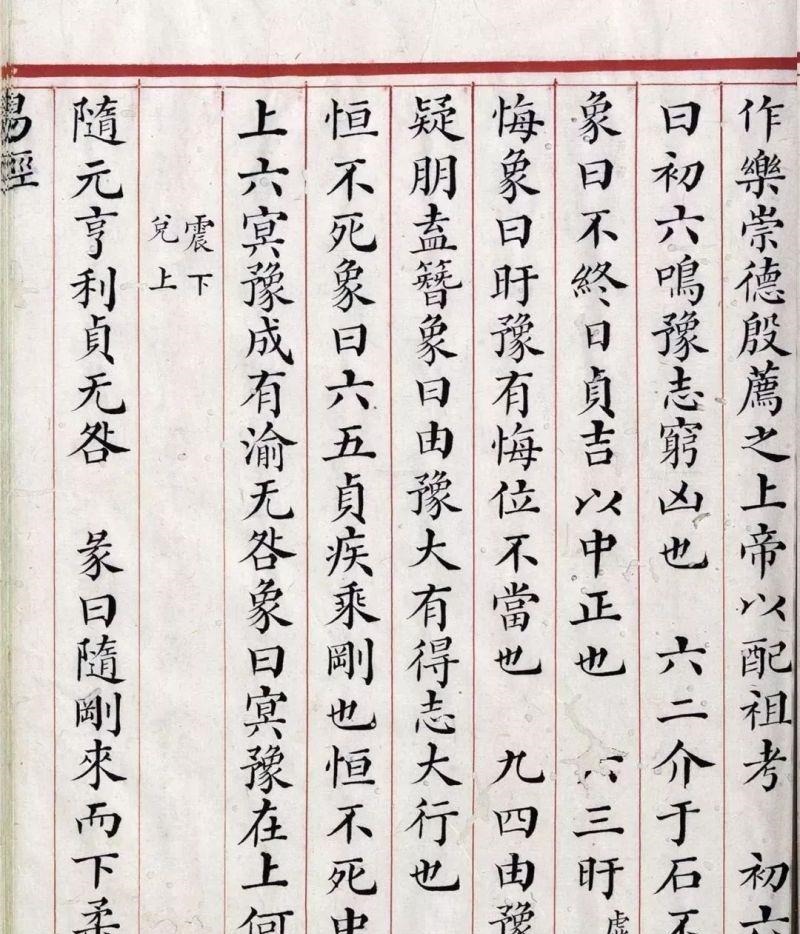 作樂崇德殷薦之上帝以配祖考 初六
曰初六鳴豫志窮凶也 六二介于石不
象曰不終日貞吉以中正也 六三盱
悔象曰盱豫有悔位不當也 九四由豫
疑朋盍簪象曰由豫大有得志大行也
恒不死象曰六五貞疾乘剛也恒不死中
上六冥豫成有渝无咎象曰冥豫在上何
震下
兌上
隨元亨利貞无咎 彖曰隨剛來而下柔
易經